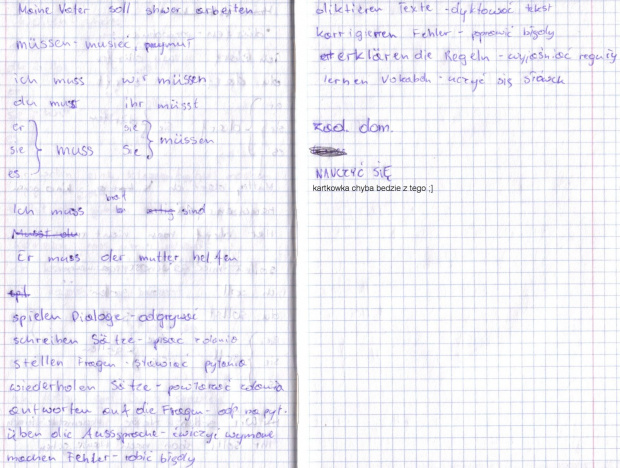 Meine Vater soll shwer arbeiten
müssen - musieć, przymus
ich muss wir müssen
du muss ihr müsst
er sie
sie } muss Sie } müssen
es
Ich muss brav sind
Musst du
Er muss der mutter helfen
spielen Dialoge - odgrywać
schreiben Sätze - pisać zdania
stellen Fragen - stawiać pytania
wiederholen Sätze - powtarzać zdania
antworten auf die Fragen - odp. na pyt.
üben die Aussprache - ćwiczyć wymowę
machen Fehler - robić błędy
diktieren Texte - dyktować tekst
korrigieren Fehler - poprawić błędy
erklären die Regeln - wyjaśniać reguły
lernen Vokabeln - uczyć się słówek
zad. dom.
NAUCZYĆ SIĘ
kartkowka chyba bedzie z tego ;]